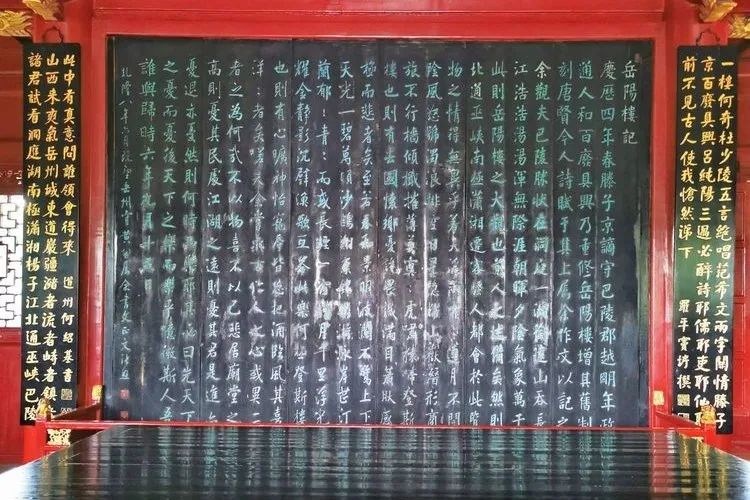 一樓何奇杜少陵五言絕唱范希文兩字關情滕子
京百廢具興呂純陽三過必醉詩耶儒耶吏耶仙耶
前不見古人使我愴然涕下 羅平竇垿撰
岳陽樓記
慶曆四年春滕子京謫守巴陵郡越明年政
通人和百廢具興乃重修岳陽樓增其舊制
刻唐賢今人詩賦于其上屬余作文以記之
余觀夫巴陵勝狀在洞庭一湖銜遠山吞長
江浩浩湯湯渾無際涯朝暉夕陰氣象萬千
此則岳陽樓之大觀也前人之述備矣然則
北通巫峽南極瀟湘遷客騷人都會於此覽
物之情得無異乎若夫霪雨霏霏連月不開
陰風怒號濁浪排空日星隱曜山嶽潛形商
旅不行檣傾檝摧薄暮冥冥虎嘯猿啼登斯
樓也則有去國懷鄉憂讒畏譏滿目蕭然感
極而悲者矣至若春和景明波瀾不驚上下
天光一碧萬頃沙鷗翔集錦鱗游泳岸芷汀
蘭郁郁青青而或長煙一空皓月千里浮光
耀金靜影沉璧漁歌互答此樂何極登斯樓
也則有心曠神怡寵辱皆忘把酒臨風其喜
洋洋者矣嗟夫余嘗求古仁人之心或異二
者之為何哉不以物喜不以己悲居廟堂之
高則憂其民處江湖之遠則憂其君是進亦
憂退亦憂然則何時而樂耶其必曰先天下
之憂而憂後天下之樂而樂歟噫微斯人吾
誰與歸時六年九月十五日
乾隆八年
諸君試看洞庭湖南極瀟湘揚子江北通巫峽巴陵
山西來爽氣岳州城東道巖疆潴者流者峙者鎮者
此中有真意問誰領會得來 道州何紹基書